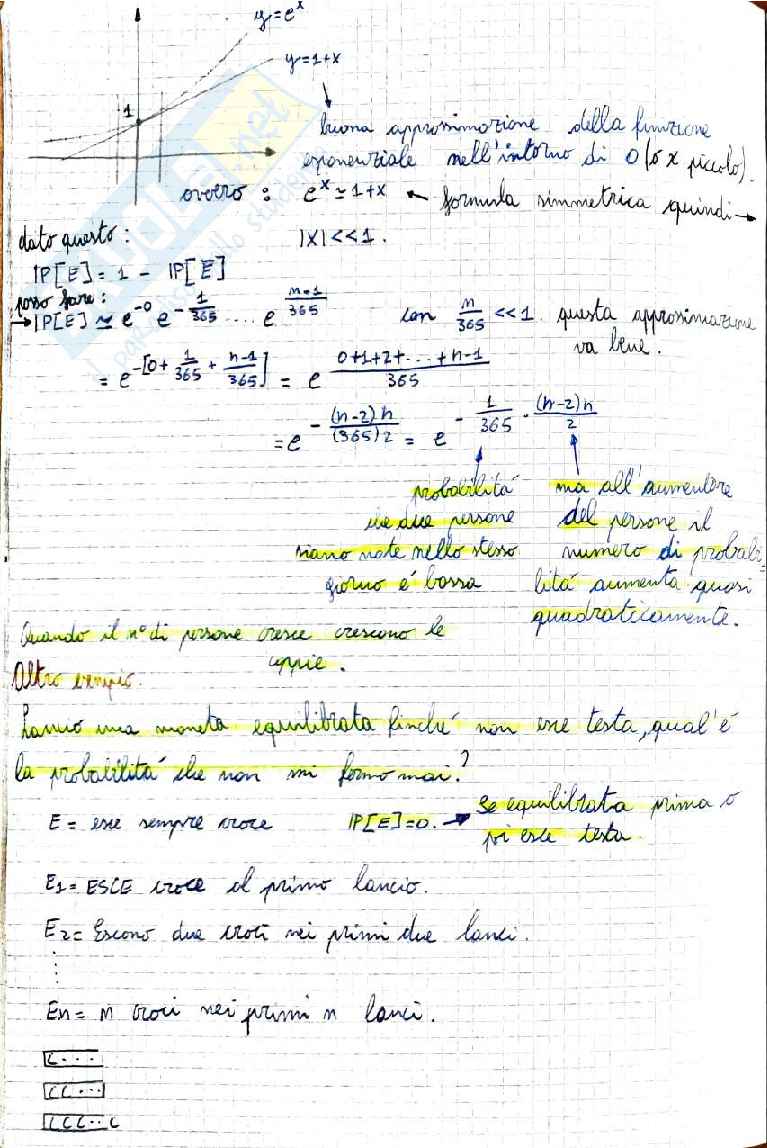 y=e^x
y=1+x
1
buona approssimazione della funzione
esponenziale nell'intorno di 0 (o x piccolo).
ovvero : e^x ≃ 1+x ← formula simmetrica quindi →
dato questo : |x|<<1.
IP[E] = 1 - IP[E̅]
posso fare :
→ IP[E̅] ≃ e^-0 e^-1/365 .... e^n-1/365 con n/365 <<1 questa approssimazione
va bene.
= e^-[0+ 1/365 + n-1/365] = e^0+1+2+...+n-1/365
= e^-(n-2)n/(365)2 = e^-1/365 · (n-2)n/2
probabilità ma all'aumentare
che due persone del persone il
siano nate nello stesso numero di probabi
giorno é bassa lità aumenta quasi
quadraticamente.
Quando il n° di persone cresce crescono le
coppie.
Altro esempio.
Lancio una moneta equilibrata finché non esce testa, qual'é
la probabilità che non mi fermo mai?
E = esce sempre croce IP[E]=0. → Se equilibrata prima o
poi esce testa
E1 = ESCE croce al primo lancio.
E2 = Escono due croci nei primi due lanci.
⋮
En = n croci nei primi n lanci.
C...
CC...
CCC..C